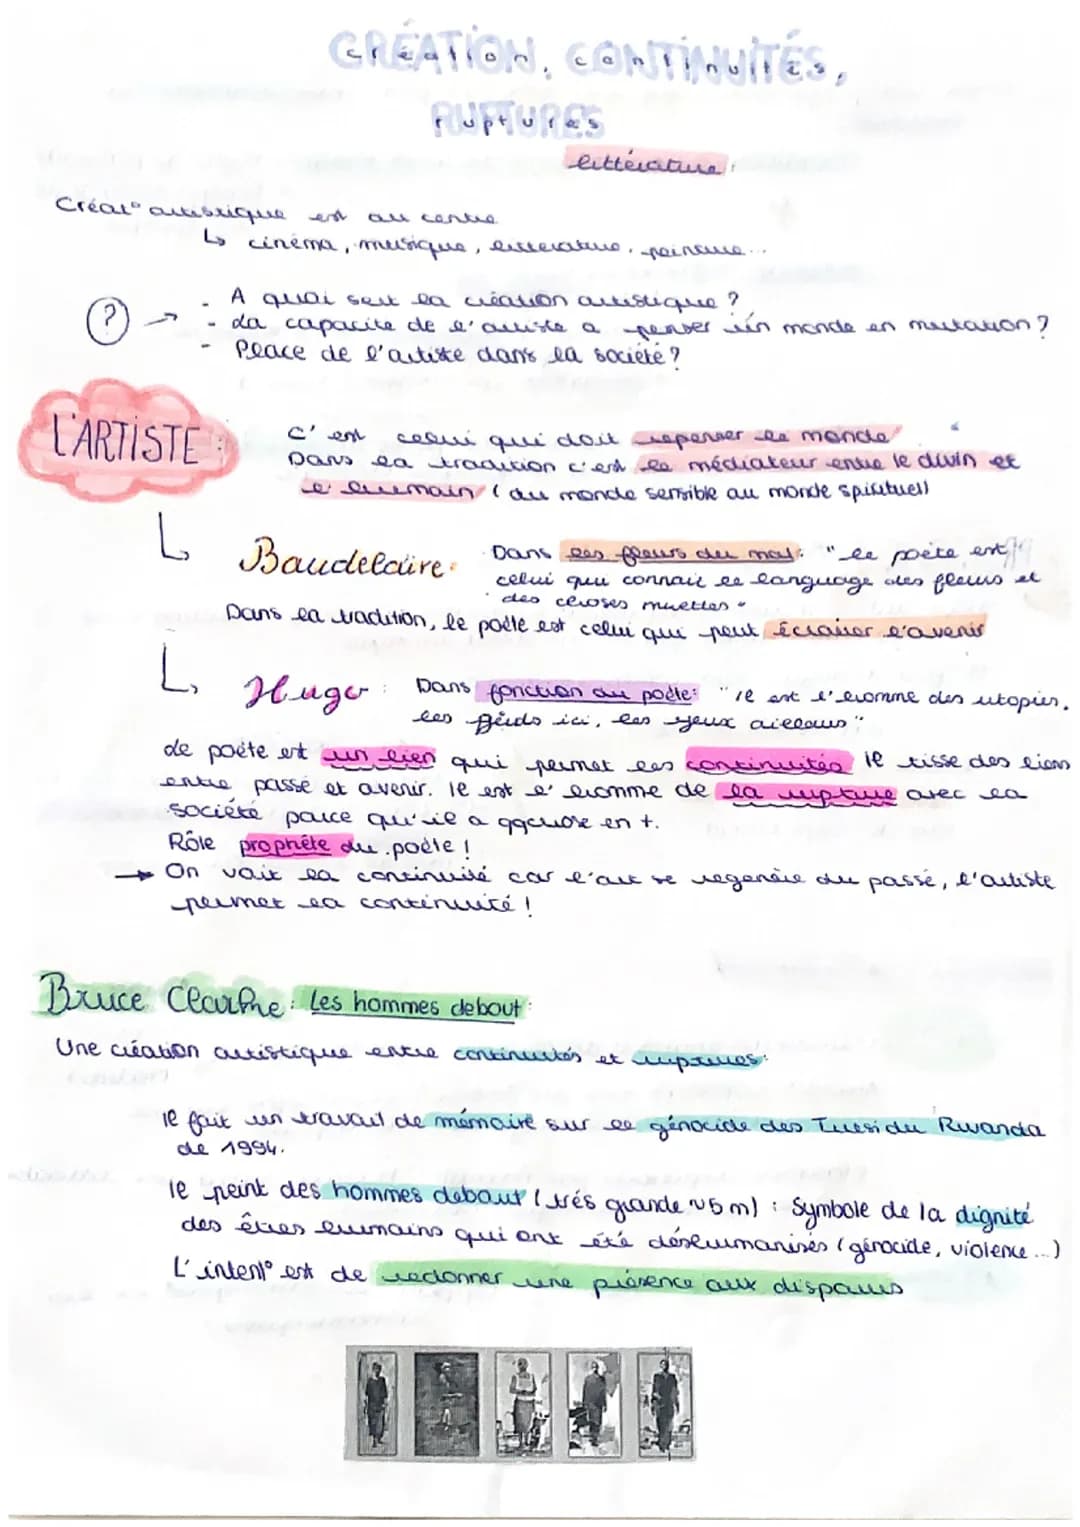 CRÉATION, CONTINUITÉS,
création, continuités,
RUPTURES
ruptures
littérature:
Créat° artistique est au centre
↳ cinéma, musique, littérature, peinture...
? → - A quoi sert la création artistique ?
- La capacité de l'artiste a penser un monde en mutation ?
- Place de l'artiste dans la société ?
L'ARTISTE :
c'est celui qui doit repenser le monde
Dans la tradition c'est le médiateur entre le divin et
l'humain (du monde sensible au monde spirituel)
↳ Baudelaire: Dans les fleurs du mal: "le poète est
celui qui connait le language des fleurs et
des choses muettes"
Dans la tradition, le poète est celui qui peut éclairer l'avenir
↳ Hugo : Dans fonction du poète: "il est l'homme des utopies,
les pieds ici, les yeux ailleurs"
Le poète est un lien qui permet les continuités il tisse des liens
entre passé et avenir. Il est l'homme de la rupture avec la
société parce qu'il a qqchose en +.
Rôle prophète du poète !
→ On voit la continuité car l'art se regenère du passé, l'artiste
permet la continuité !
Bruce Clarke: Les hommes debout:
Une création artistique entre continuités et ruptures:
Il fait un travail de mémoire sur le génocide des Tutsi du Rwanda
de 1994.
Il peint des hommes debout (très grande ~5m) : Symbole de la dignité
des êtres humains qui ont été déshumanisés (génocide, violence...)
L'intent° est de redonner une présence aux disparus